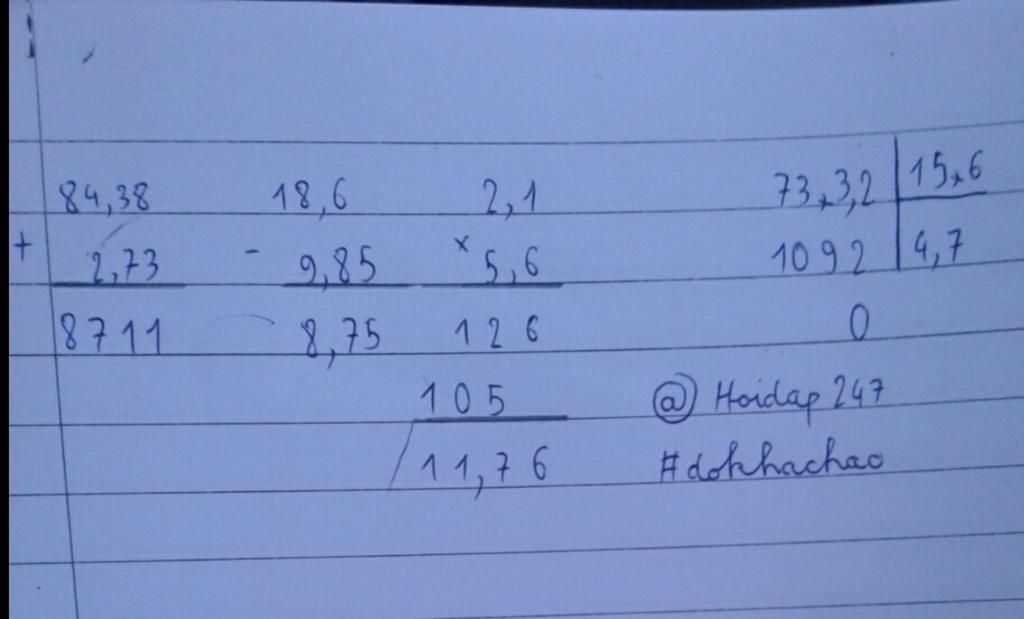 84,38 18,6 2,1 73,3,2 15,6
+ 2,73 - 9,85 × 5,6 1092 4,7
8711 8,75 126 0
105 @ Hoidap 247
11,76 #dokhachao